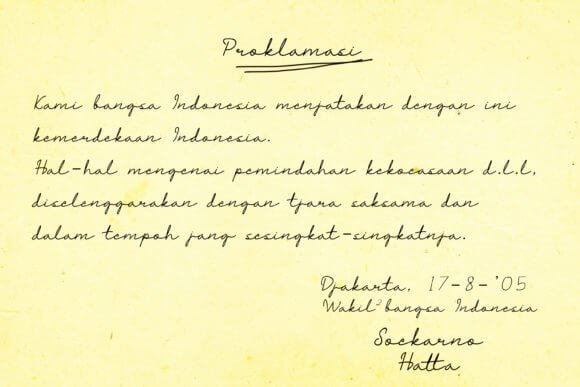 Proklamasi
Kami bangsa Indonesia menjatakan dengan ini
kemerdekaan Indonesia.
Hal-hal mengenai pemindahan kekoeasaan d.l.l,
diselenggarakan dengan tjara saksama dan
dalam tempoh jang sesingkat-singkatnja.
Djakarta, 17-8-'05
Wakil² bangsa Indonesia
Soekarno
Hatta